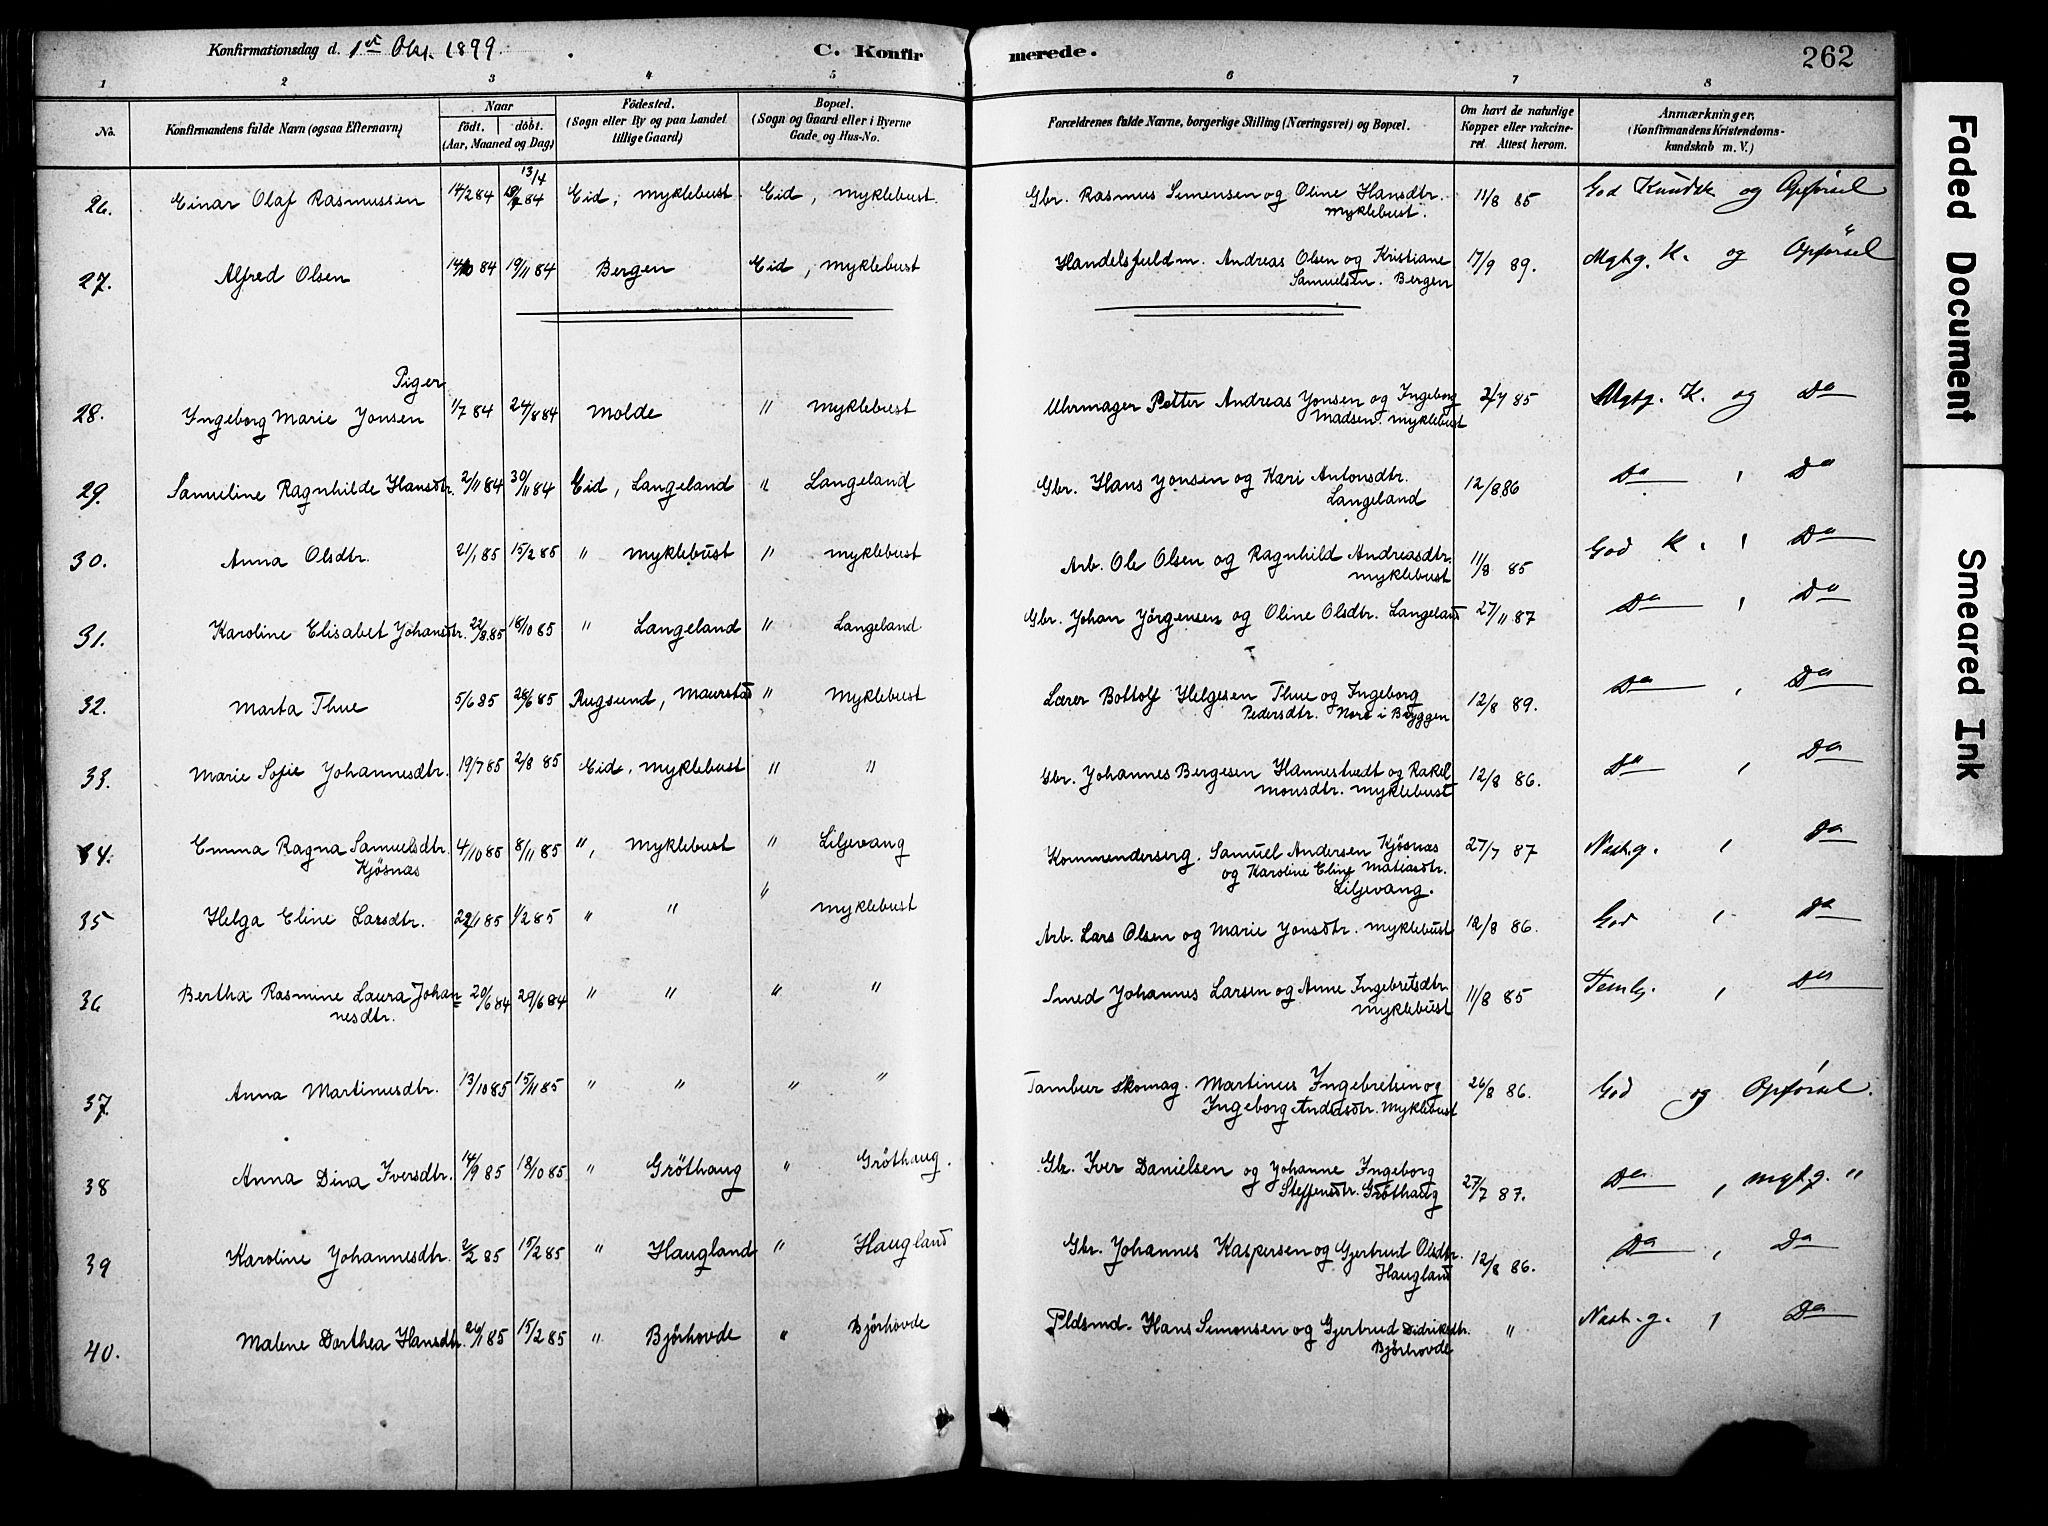 Konfirmationsdag d. 1ste Okt. 1899. C. Konfirmerede. 262
1 2 3 4 5 6 7 8
No. Konfirmandens fulde Navn (ogsaa Efternavn) Naar født. døbt. (Aar, Maaned og Dag) Fødested. (Sogn eller By og paa Landet tillige Gaard) Bopæl. (Sogn og Gaard eller i Byerne Gade og Hus-No. Forældrenes fulde Navne, borgerlige Stilling (Næringsvei) og Bopæl. Om havt de naturlige Kopper eller vakcineret Attest herom. Anmærkninger. (Konfirmandens Kristendomskundskab m. V.)
26. Einar Olaf Rasmussen 14/2 84 13/4 84 Eid, Myklebust Eid, Myklebust. Gbr. Rasmus Simensen og Oline Hansdtr. Myklebust. 11/8 85 God Kundsk og Opførsel
27. Alfred Olsen 14/10 84 19/11 84 Bergen Eid, Myklebust Handelsfuldm. Andreas Olsen og Kristiane Samuelsen. Bergen 17/9 89. Mgtg. K. og Opførsel
Piger
28. Ingeborg Marie Jonsen 1/7 84 24/8 84 Molde " Myklebust Uhrmager Petter Andreas Jonsen og Ingeborg Madsen. Myklebust 2/7 85 Mgtg. K. og Do
29. Samueline Ragnhilde Hansdtr. 2/11 84 30/11 84 Eid, Langeland " Langeland Gbr. Hans Jonsen og Kari Antonsdtr. Langeland 12/8 86 Do , Do
30. Anna Olsdtr. 21/1 85 15/2 85 " Myklebust " Myklebust Arb. Ole Olsen og Ragnhild Andreasdtr. Myklebust 11/8 85 God K. , Do
31. Karoline Elisabet Johansdtr. 22/8 85 18/10 85 " Langeland " Langeland Gbr. Johan Jörgensen og Oline Olsdtr. Langeland 27/11 87 Do , Do
32. Marta Thue 5/6 85 28/6 85 Rugsund, Maurstad " Myklebust Lærer Bottolf Helgesen Thue og Ingeborg Pedersdtr. Nore i Bryggen 12/8 89. Do , Do
33. Marie Sofie Johannesdtr. 19/7 85 2/8 85 Eid, Myklebust " " Gbr. Johannes Bergesen Hannestvedt og Rakel Monsdtr. Myklebust 12/8 86. Do , Do
34. Emma Ragna Samuelsdtr. Kjösnæs 4/10 85 8/11 85 ", Myklebust " Liljevang Kommenderserg. Samuel Andersen Kjösnæs og Karoline Eline Matiasdtr. Liljevang. 27/7 87 Nast.g. , Do
35 Helga Eline Larsdtr. 22/1 85 1/2 85 " " " Myklebust Arb. Lars Olsen og Marie Jonsdtr. Myklebust 12/8 86. God , Do
36 Bertha Rasmine Laura Johannesdtr. 20/6 84 29/6 84 " " " " Smed Johannes Larsen og Anne Ingebretsdtr. Myklebust 11/8 85 Temlg. , Do
37. Anna Martinusdtr. 13/10 85 15/11 85 " " " " Tambur Skomag. Martinus Ingebretsen og Ingeborg Andersdtr. Myklebust 26/8 86. God og Opførsel.
38 Anna Dina Iversdtr. 14/9 85 18/10 85 " Gröthaug " Gröthaug. Gbr. Iver Danielsen og Johanne Ingeborg Steffensdtr. Gröthaug 27/7 87. Do , mgt.g. "
39 Karoline Johannesdtr. 2/2 85 15/2 85 " Haugland " Haugland Gbr. Johannes Kaspersen og Gjertrud Olsdtr. Haugland 12/8 86. Do , Do
40. Malene Dorthea Hansdtr. 26/1 85 15/2 85 " Bjórhovde " Bjórhovde Pldsmd. Hans Simonsen og Gjertrud Didriksdtr. Bjórhovde " Nast.g. , Do
Faded Document
Smeared Ink